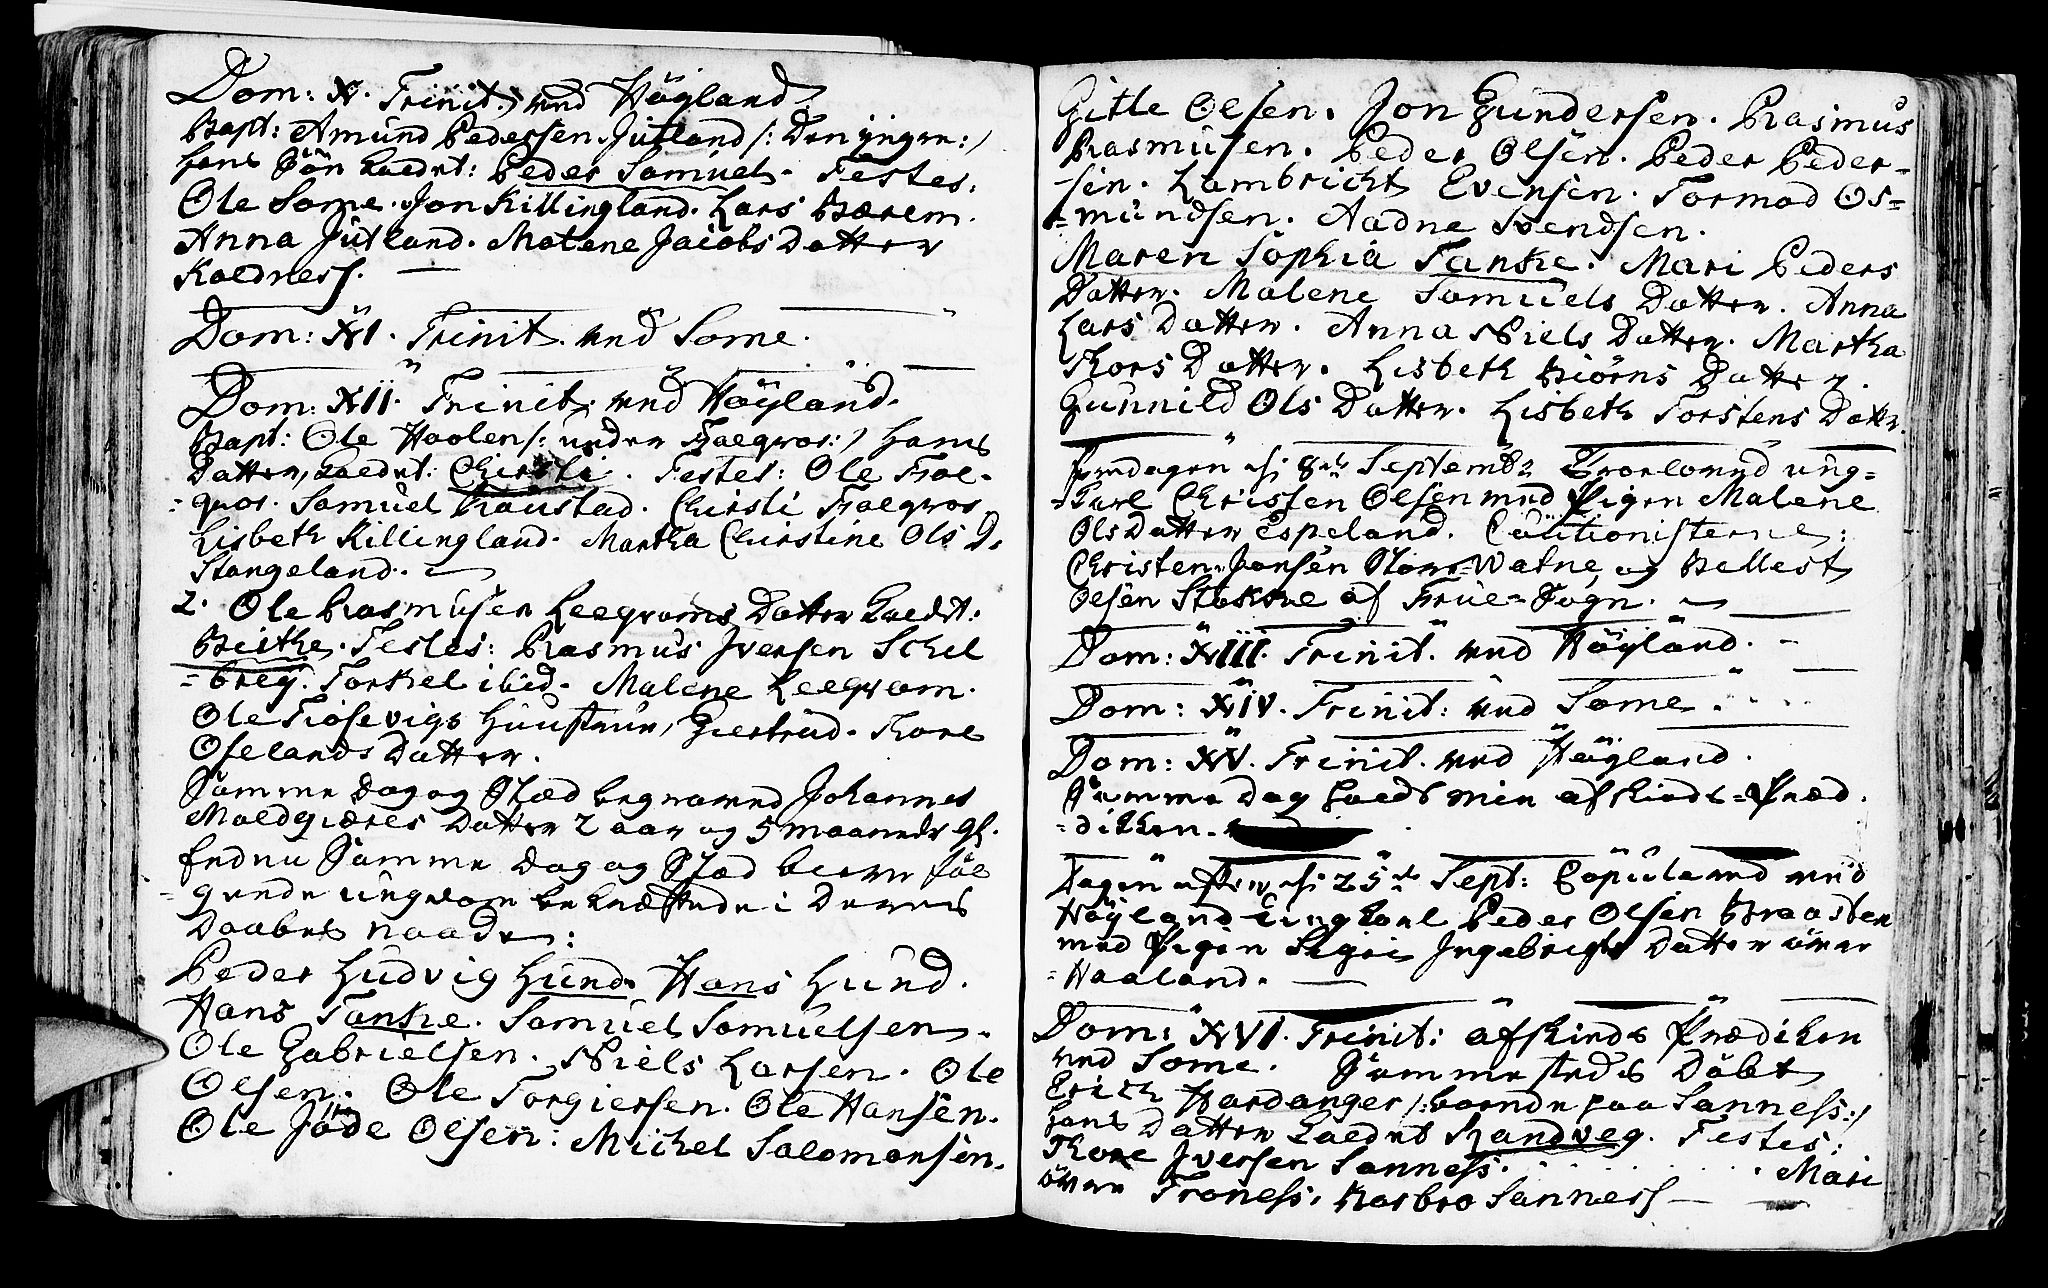 Dom: X. Trinit. ved Höyland
Bapt: Amund Pedersen Jütland /: Den yngre: /
hans Sön kaldet: Peder Samuel. Testes:
Ole Some. Jon Killingland. Lars Bærem.
Anna Jütland. Malene Jacobs Datter
Koldness.
Dom: XI. Trinit. ved Some.
Dom: XII. Trinit. ved Höyland.
Bapt: Ole Haalen /: under Foegroe: / hans
Datter, kaldet: Chirsti. Testes: Ole Foe-
groe. Samuel Haustad. Chirsti Foegroe.
Lisbeth Killingland. Martha Chirstine Ols D.
Stangeland.
2. Ole Rasmüsen Leegroms Datter kaldt:
Berthe. Testes: Rasmus Iversen Schel
=brey. Torkel ibid. Malene Leegrom.
Ole Tiosevigs Huustrue, Giertrud. Thore
Oselands Datter.
Samme Dag og Stæd begraved Johannes
Moldgiæres Datter 2 aar og 5 maaneder gl.
Endnu Samme Dag og Stæd bleve föl
=gende ungdom bekræftede i Deres
Daabes naade:
Peder Ludvig Hund. Hans Hund.
Hans Tanke. Samuel Samuelsen.
Ole Gabrielsen. Niels Larsen. Ole
Olsen. Ole Torgiersen. Ole Hansen.
Ole Jöde Olsen: Michel Salomonsen.
Gitle Olsen. Jon Gundersen. Rasmus
Rasmüsen. Peder Olsen. Peder Peder-
-sen. Lambricht Evensen. Tormod Os=
=mündsen. Aadne Svendsen.
Maren Sophia Tanke. Mari Peders
Datter. Malene Samuels Datter. Anna
Lars Datter. Anna Niels Datter. Martha
Thors Datter. Lisbeth Biörns Datter.
Gunnild Ols Datter. Lisbeth Torstens Datter.
Fredagen d: 8de Septembr Troloved ung=
=karl Christen Olsen med Pigen Malene
Ols Datter Espeland. Cautionisterne:
Christen Jansen Store-Watne og Bellest
Olsen Stokke af Frue-Sogn.
Dom: XIII. Trinit. ved Höyland.
Dom: XIV. Trinit: ved Some.
Dom: XV. Trinit. ved Höyland.
Samme Dag holdt min afskeeds-Præd
=diken.
Dagen efter d: 25de Sept: Copuleered ved
Höyland Ungkarl Peder Olsen Braasten
med Pigen Sigri Ingebrigts Datter övre
=Haaland.
Dom: XVI. Trinit: afskeeds Prædiken
ved Some. Sammesteds Döbt
Erich Hardanger /: boende paa Sanness: /
hans Datter kaldet Randveg. Testes:
Thore Iversen Sanness. Mari
övre Troness, Rasbro Sanness